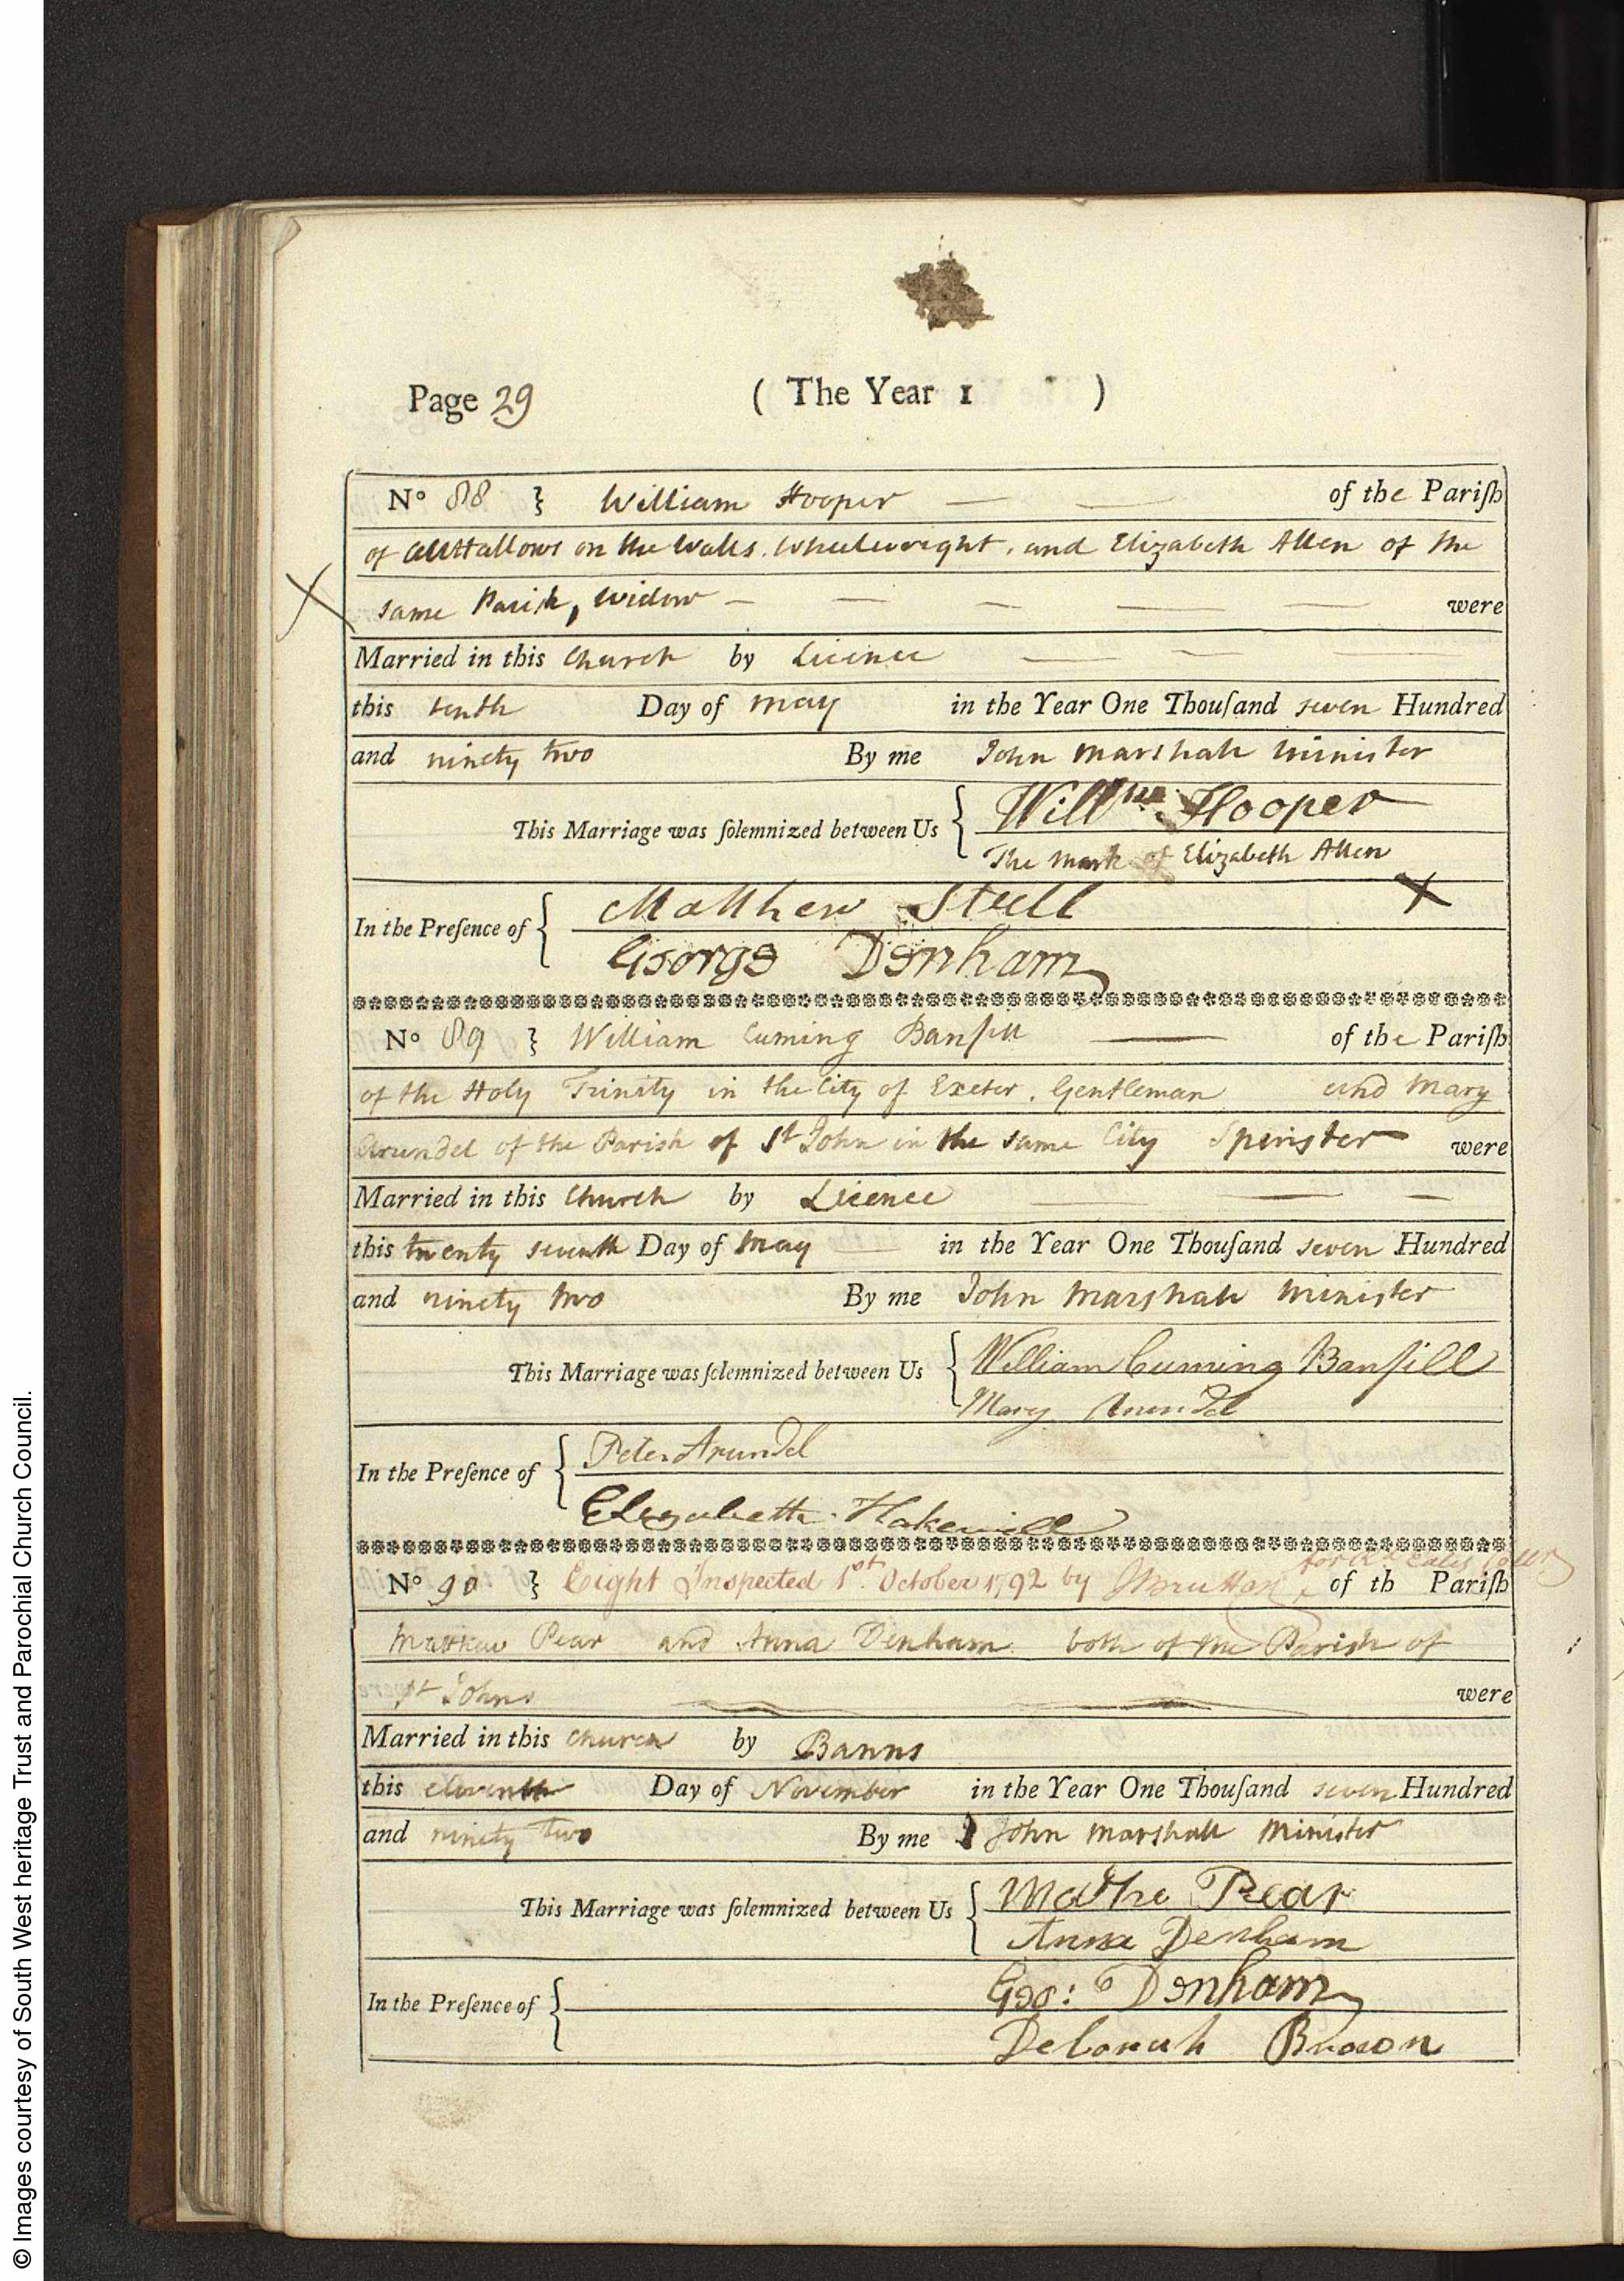 Page 29 ( The Year 1 )
No 88 } William Hooper — — of the Pariſh
of AllHallows on the Walls. Wheelwright, and Elizabeth Allen of the
same Parish, Widow — — — — — were
Married in this Church by Licence — — —
this tenth Day of May in the Year One Thouſand seven Hundred
and ninety two By me John Marshall Minister
This Marriage was ſolemnized between Us { Willm Hooper
The mark of Elizabeth Allen
X
In the Preſence of { Matthew Stell
George Denham
No 89 } William Cuming Banfill — of the Pariſh
of the Holy Trinity in the City of Exeter. Gentleman and Mary
Arundel of the Parish of St John in the same City Spinster were
Married in this Church by Licence — — —
this twenty seventh Day of May — in the Year One Thouſand seven Hundred
and ninety two By me John Marshall Minister
This Marriage was ſolemnized between Us { William Cuming Banfill
Mary Arundel
In the Preſence of { Peter Arundel
Elizabeth Hakewill
No 90 } Eight Inspected 1st. October 1792 by of th Pariſh
Matthew Pear and Anna Denham both of the Parish of
St Johns — — were
Married in this Church by Banns
this eleventh Day of November in the Year One Thouſand seven Hundred
and ninety two By me John Marshall Minister
This Marriage was ſolemnized between Us { Mathe Pear
Anna Denham
In the Preſence of { Geo: Denham
Deborah Brown
© Images courtesy of South West heritage Trust and Parochial Church Council.